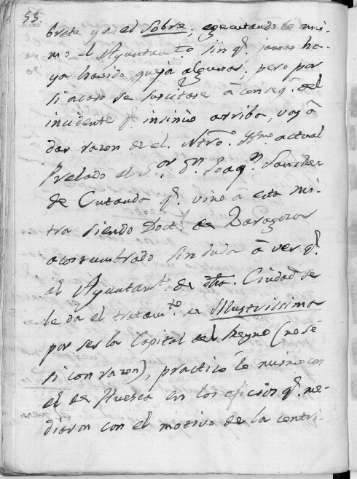 55
brete ya el Sobre; egecutando lo mis-
mo el Ayuntam.to sin q.e jamas ha-
ya havido queja alguna; pero por
si acaso se suscitase â conseq.a del
incidente q.e insinúo arriba, voy â
dar razon de el. Ntro. Yllmo actual
Prelado el S.or D.n Joaq.n Sanchez
de Cutanda q.e vino â esta mi-
tra siendo Doct.l de Zaragoza
acostumbrado sin duda â ver q.e
el Ayuntam.to de dha. Ciudad se
le da el tratam.to de Illustrissima
por ser la Capital del Reyno (no sé
si con razon), practicó lo mismo con
el de Huesca en los oficios q.e me-
diaron con el motivo de la contri-